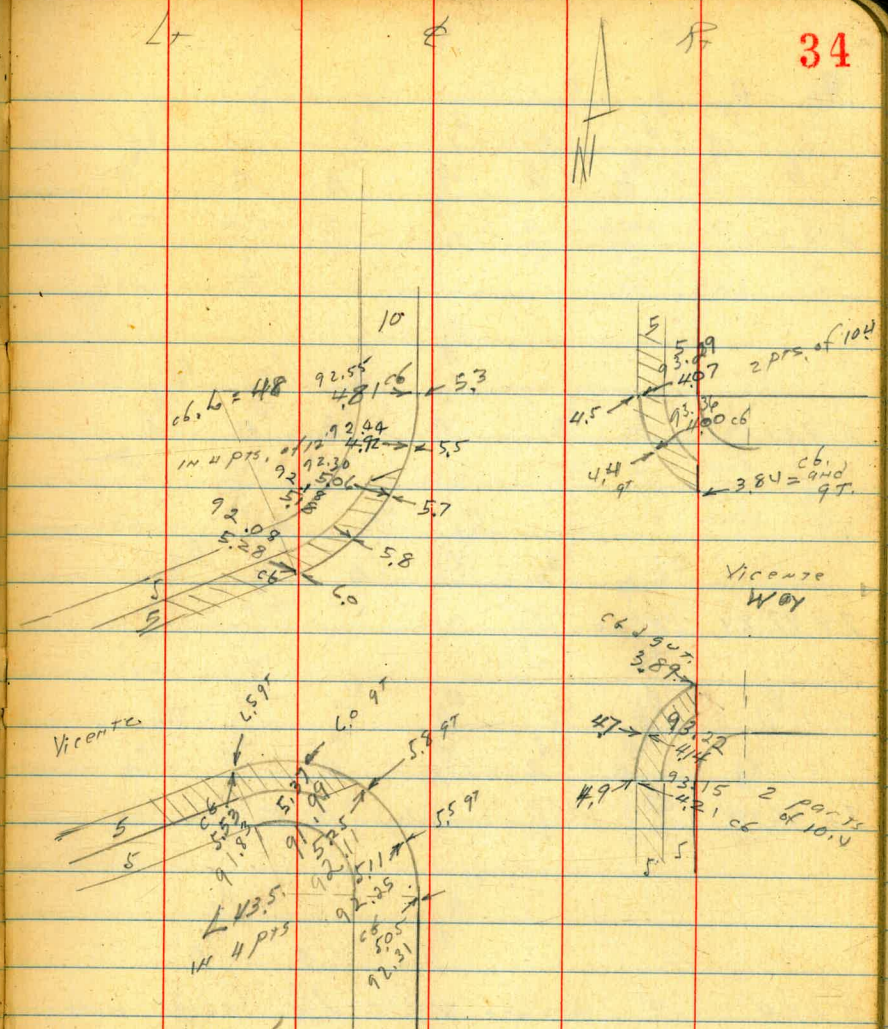 Lt
℄
Rt
34
N
10
92.55
4.81
cb
5.3
cb. L = 48
in 4 pts. of 12'
92.44
4.92
5.5
92.30
5.06
5.7
92.18
5.18
5.8
92.08
5.28
cb
6.0
5
5
5
4.07
4.5
2 pts. of 10.4
93.36
4.00 cb
4.4
gt
3.84 = cb. and gt.
Vicente
Way
cb & gut.
3.89
4.7
93.22
4.14
4.9
93.15
4.21 cb
2 parts
of 10.4
5
5
Vicente
6.5 gt
6.0 gt
5.8 gt
5.5 gt
5
5
cb
5.53
91.83
5.37
91.99
5.25
92.11
5.11
92.25
cb
5.05
92.31
L 43.5
in 4 pts